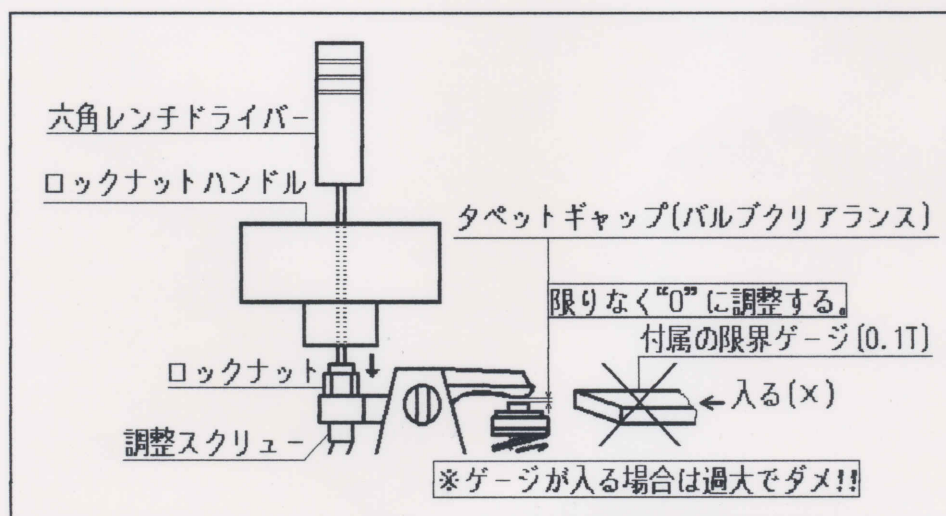 六角レンチドライバー
ロックナットハンドル
タペットギャップ(バルブクリアランス)
限りなく“0”に調整する。
付属の限界ゲージ(0.1T)
ロックナット
入る(×)
調整スクリュー
※ゲージが入る場合は過大でダメ!!